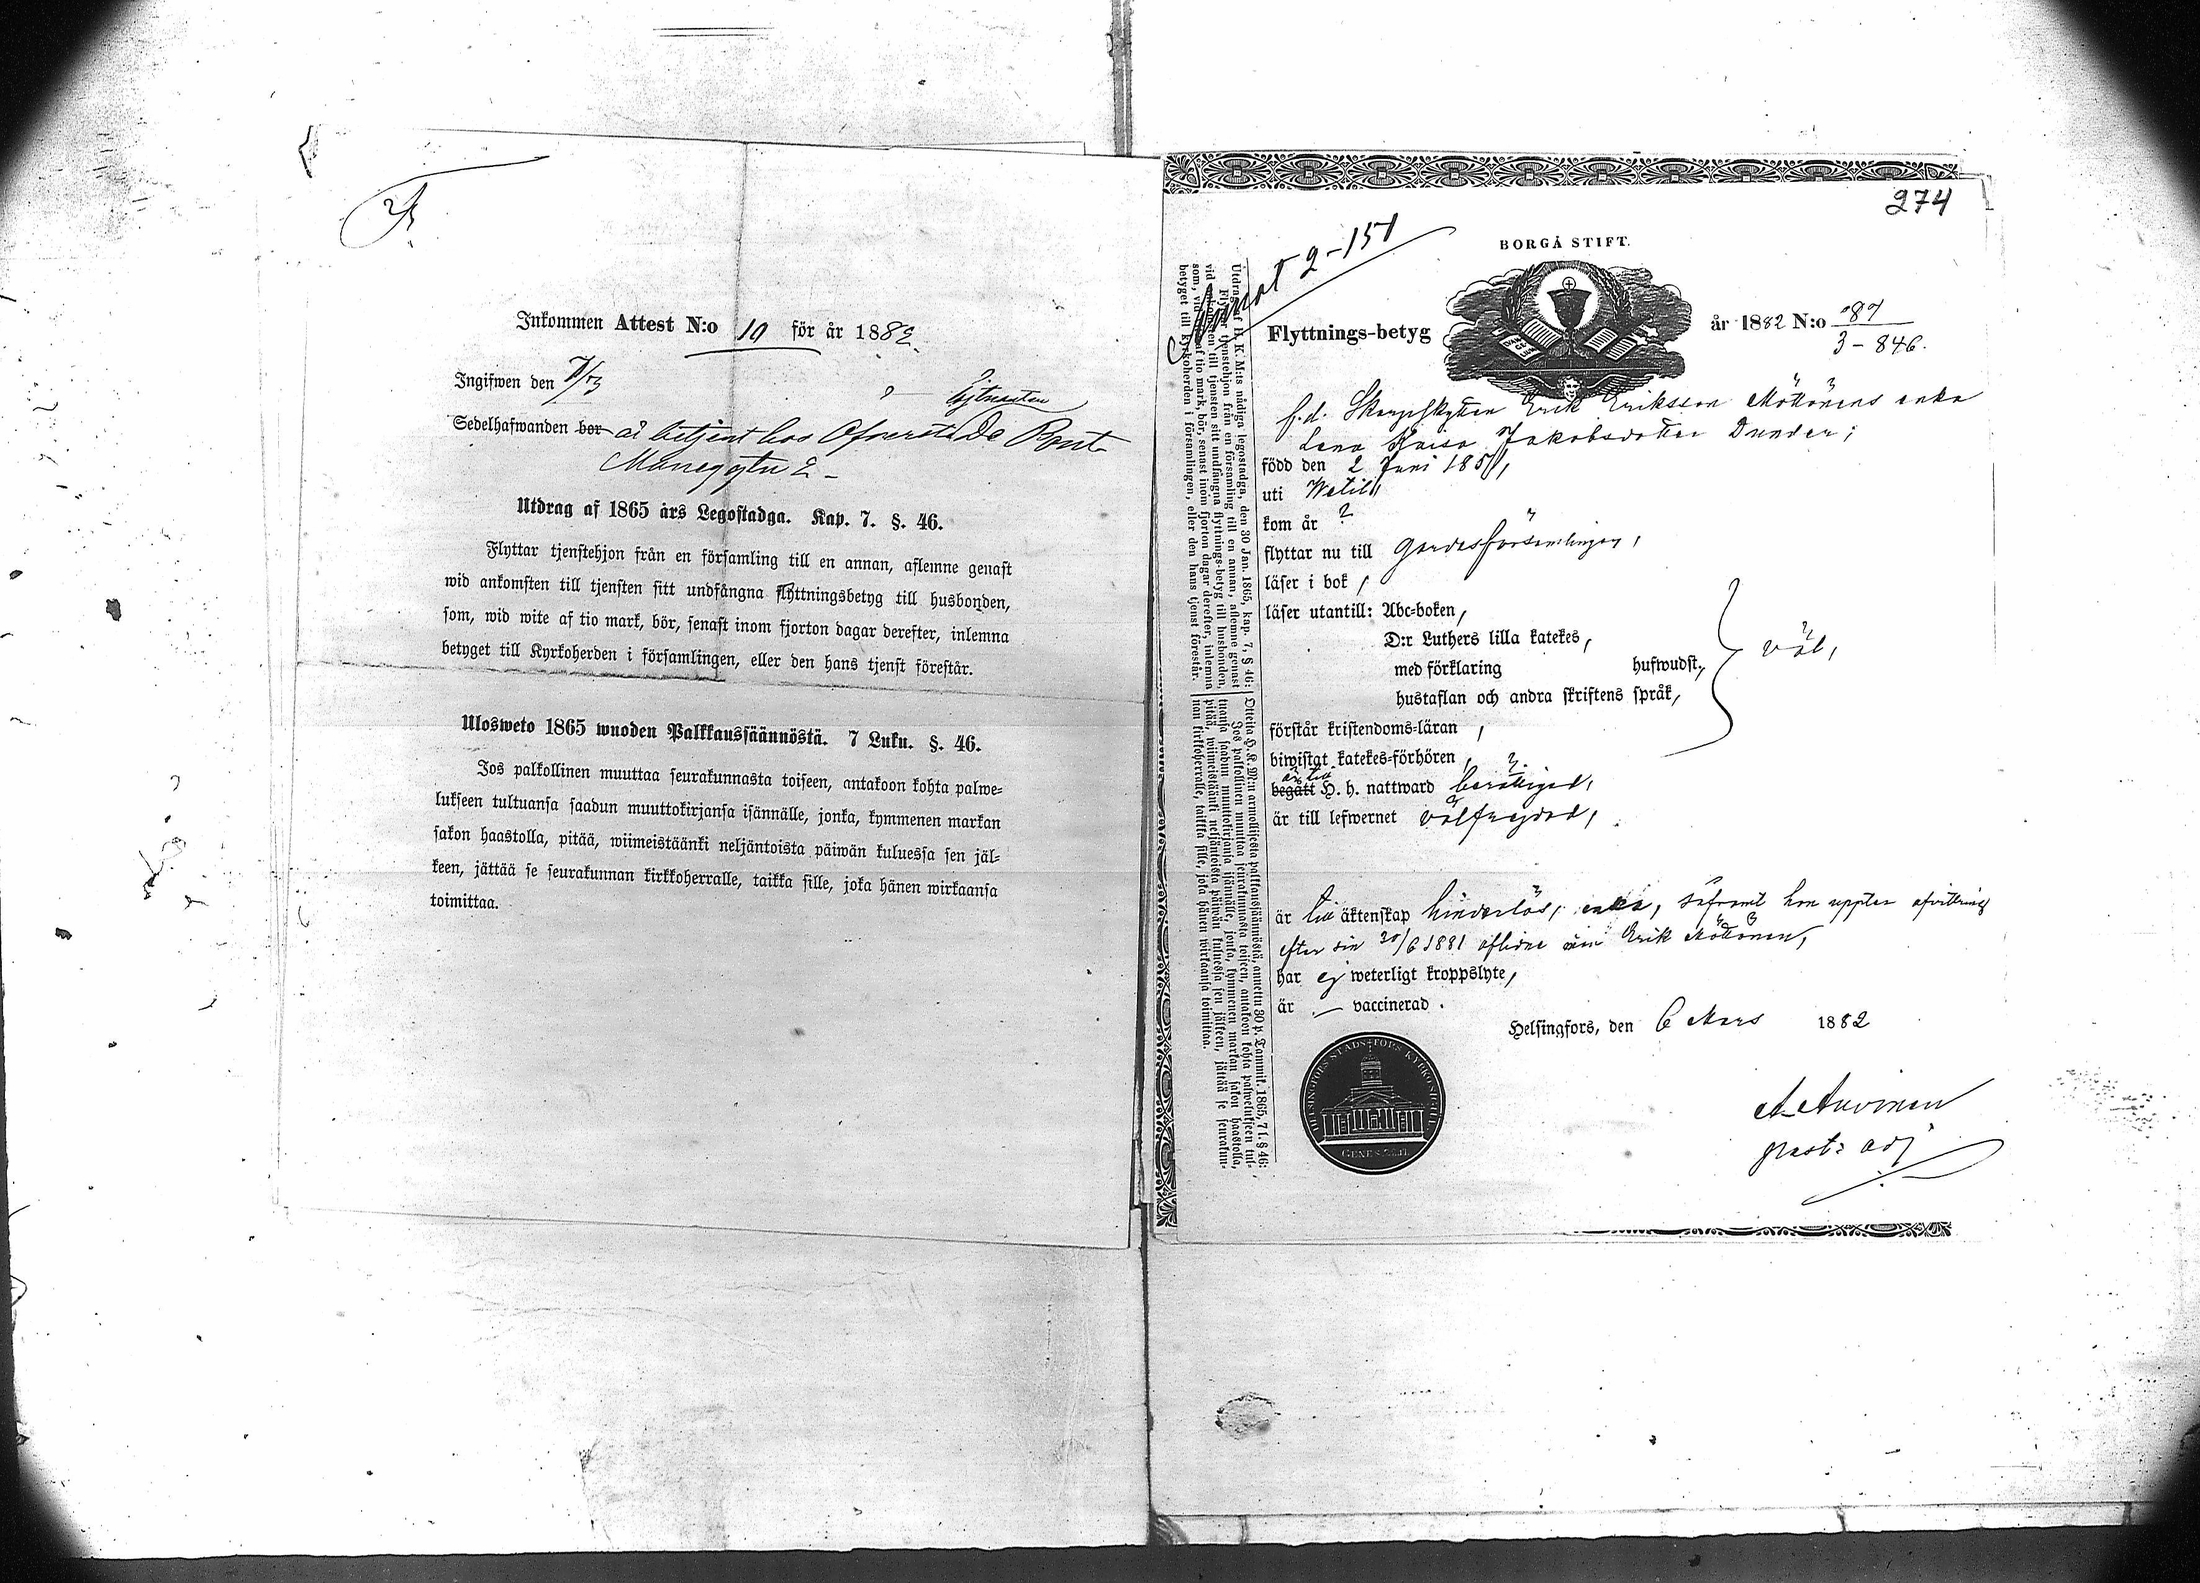 Inkommen Attest N:o 10 för år 1882.
Ingifwen den 7/3
Sedelhafwanden bor är betjent hos Öfverstelöjtnanten De Pont
Maneggtn 2 –
Utdrag af 1865 års Legostadga. Kap. 7. §. 46.
Flyttar tjenstehjon från en församling till en annan, aflemne genast
wid ankomsten till tjensten sitt undfångna flyttningsbetyg till husbonden,
som, wid wite af tio mark, bör, senast inom fjorton dagar derefter, inlemna
betyget till Kyrkoherden i församlingen, eller den hans tjenst förestår.
Ulosweto 1865 wuoden Palkkaussäännöstä. 7 Luku. §. 46.
Jos palkollinen muuttaa seurakunnasta toiseen, antakoon kohta palwe-
lukseen tultuansa saadun muuttokirjansa isännälle, jonka, kymmenen markan
sakon haastolla, pitää, wiimeistäänki neljäntoista päiwän kuluessa sen jäl-
keen, jättää se seurakunnan kirkkoherralle, taikka sille, joka hänen wirkaansa
toimittaa.
274
2-151
BORGÅ STIFT.
Flyttnings-betyg år 1882 N:o 87
3-846.
f.d. Skarpskytten Erik Eriksson Mökönens enka
Lena Kaisa Jakobsdotter Dunder;
född den 2 Juni 1851,
uti Wetil,
kom år ?
flyttar nu till Gardesförsamlingen,
läser i bok,
läser utantill: Abc-boken,
D:r Luthers lilla katekes,
med förklaring hufwudst.,
hustaflan och andra skriftens språk,
väl,
förstår kristendoms-läran,
biwistat katekes-förhören,
är till
begått H. h. nattward berättigad,
är till lefwernet välfrejdad,
är till äktenskap hinderlös, enka, såframt hon uppter afvittring
efter sin 20/6 1881 aflidne man Erik Mökönen,
har ej weterligt kroppslyte,
är — vaccinerad.
Helsingfors, den 6 Mars 1882
A Auvinen
past: adj
HELSINGFORS STADS-FÖRS. KYRKO-SIGILL.
Utdrag af H. K. M:ts nådiga legostadga, den 30 Jan. 1865, kap. 7, § 46:
Flyttar tjenstehjon från en församling till en annan, aflemne genast
vid ankomsten till tjensten sitt undfångna flyttnings-betyg till husbonden,
som, vid vite af tio mark, bör, senast inom fjorton dagar derefter, inlemna
betyget till Kyrkoherden i församlingen, eller den hans tjenst förestår.
Otteita H. K. M:n armollisesta palkkaussäännöstä, annettu 30 p. Tammik. 1865, 7 l. § 46:
Jos palkollinen muuttaa seurakunnasta toiseen, antakoon kohta palwelukseen tul-
tuansa saadun muuttokirjansa isännälle, jonka, kymmenen markan sakon haastolla,
pitää, wiimeistäänki neljäntoista päiwän kuluessa sen jälkeen, jättää se seurakun-
nan kirkkoherralle, taikka sille, joka hänen wirkaansa toimittaa.